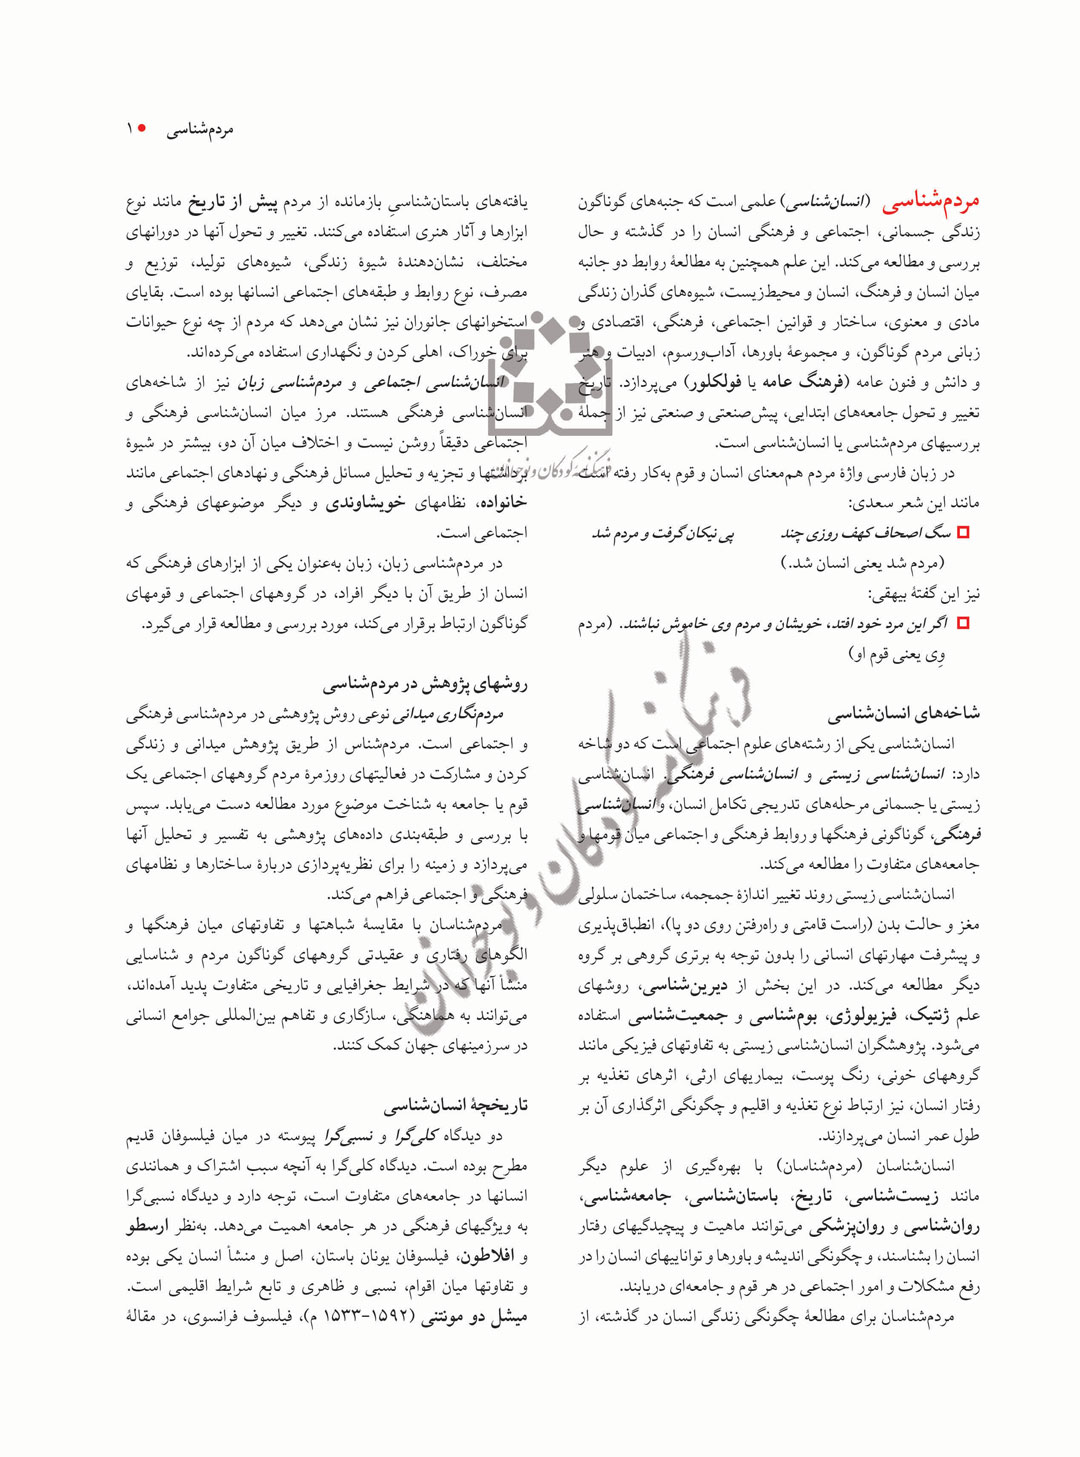 مردم‌شناسی ● ۱
مردم‌شناسی (انسان‌شناسی) علمی است که جنبه‌های گوناگون
زندگی جسمانی، اجتماعی و فرهنگی انسان را در گذشته و حال
بررسی و مطالعه می‌کند. این علم همچنین به مطالعهٔ روابط دو جانبه
میان انسان و فرهنگ، انسان و محیط‌زیست، شیوه‌های گذران زندگی
مادی و معنوی، ساختار و قوانین اجتماعی، فرهنگی، اقتصادی و
زبانی مردم گوناگون، و مجموعهٔ باورها، آداب‌ورسوم، ادبیات و هنر
و دانش و فنون عامه (فرهنگ عامه یا فولکلور) می‌پردازد. تاریخ
تغییر و تحول جامعه‌های ابتدایی، پیش‌صنعتی و صنعتی نیز از جملهٔ
بررسیهای مردم‌شناسی یا انسان‌شناسی است.
در زبان فارسی واژهٔ مردم هم‌معنای انسان و قوم به‌کار رفته است
مانند این شعر سعدی:
سگ اصحاف کهف روزی چند پی نیکان گرفت و مردم شد
(مردم شد یعنی انسان شد.)
نیز این گفتهٔ بیهقی:
اگر این مرد خود افتد، خویشان و مردم وی خاموش نباشند. (مردم
وِی یعنی قوم او)
شاخه‌های انسان‌شناسی
انسان‌شناسی یکی از رشته‌های علوم اجتماعی است که دو شاخه
دارد: انسان‌شناسی زیستی و انسان‌شناسی فرهنگی. انسان‌شناسی
زیستی یا جسمانی مرحله‌های تدریجی تکامل انسان، و انسان‌شناسی
فرهنگی، گوناگونی فرهنگها و روابط فرهنگی و اجتماعی میان قومها و
جامعه‌های متفاوت را مطالعه می‌کند.
انسان‌شناسی زیستی روند تغییر اندازهٔ جمجمه، ساختمان سلولی
مغز و حالت بدن (راست قامتی و راه‌رفتن روی دو پا)، انطباق‌پذیری
و پیشرفت مهارتهای انسانی را بدون توجه به برتری گروهی بر گروه
دیگر مطالعه می‌کند. در این بخش از دیرین‌شناسی، روشهای
علم ژنتیک، فیزیولوژی، بوم‌شناسی و جمعیت‌شناسی استفاده
می‌شود. پژوهشگران انسان‌شناسی زیستی به تفاوتهای فیزیکی مانند
گروههای خونی، رنگ پوست، بیماریهای ارثی، اثرهای تغذیه بر
رفتار انسان، نیز ارتباط نوع تغذیه و اقلیم و چگونگی اثرگذاری آن بر
طول عمر انسان می‌پردازند.
انسان‌شناسان (مردم‌شناسان) با بهره‌گیری از علوم دیگر
مانند زیست‌شناسی، تاریخ، باستان‌شناسی، جامعه‌شناسی،
روان‌شناسی و روان‌پزشکی می‌توانند ماهیت و پیچیدگیهای رفتار
انسان را بشناسند، و چگونگی اندیشه و باورها و تواناییهای انسان را در
رفع مشکلات و امور اجتماعی در هر قوم و جامعه‌ای دریابند.
مردم‌شناسان برای مطالعهٔ چگونگی زندگی انسان در گذشته، از
یافته‌های باستان‌شناسیِ بازمانده از مردم پیش از تاریخ مانند نوع
ابزارها و آثار هنری استفاده می‌کنند. تغییر و تحول آنها در دورانهای
مختلف، نشان‌دهندهٔ شیوهٔ زندگی، شیوه‌های تولید، توزیع و
مصرف، نوع روابط و طبقه‌های اجتماعی انسانها بوده است. بقایای
استخوانهای جانوران نیز نشان می‌دهد که مردم از چه نوع حیوانات
برای خوراک، اهلی کردن و نگهداری استفاده می‌کرده‌اند.
انسان‌شناسی اجتماعی و مردم‌شناسی زبان نیز از شاخه‌های
انسان‌شناسی فرهنگی هستند. مرز میان انسان‌شناسی فرهنگی و
اجتماعی دقیقاً روشن نیست و اختلاف میان آن دو، بیشتر در شیوهٔ
برداشتها و تجزیه و تحلیل مسائل فرهنگی و نهادهای اجتماعی مانند
خانواده، نظامهای خویشاوندی و دیگر موضوعهای فرهنگی و
اجتماعی است.
در مردم‌شناسی زبان، زبان به‌عنوان یکی از ابزارهای فرهنگی که
انسان از طریق آن با دیگر افراد، در گروههای اجتماعی و قومهای
گوناگون ارتباط برقرار می‌کند، مورد بررسی و مطالعه قرار می‌گیرد.
روشهای پژوهش در مردم‌شناسی
مردم‌نگاری میدانی نوعی روش پژوهشی در مردم‌شناسی فرهنگی
و اجتماعی است. مردم‌شناس از طریق پژوهش میدانی و زندگی
کردن و مشارکت در فعالیتهای روزمرهٔ مردم گروههای اجتماعی یک
قوم یا جامعه به شناخت موضوع مورد مطالعه دست می‌یابد. سپس
با بررسی و طبقه‌بندی داده‌های پژوهشی به تفسیر و تحلیل آنها
می‌پردازد و زمینه را برای نظریه‌پردازی دربارهٔ ساختارها و نظامهای
فرهنگی و اجتماعی فراهم می‌کند.
مردم‌شناسان با مقایسهٔ شباهتها و تفاوتهای میان فرهنگها و
الگوهای رفتاری و عقیدتی گروههای گوناگون مردم و شناسایی
منشأ آنها که در شرایط جغرافیایی و تاریخی متفاوت پدید آمده‌اند،
می‌توانند به هماهنگی، سازگاری و تفاهم بین‌المللی جوامع انسانی
در سرزمینهای جهان کمک کنند.
تاریخچهٔ انسان‌شناسی
دو دیدگاه کلی‌گرا و نسبی‌گرا پیوسته در میان فیلسوفان قدیم
مطرح بوده است. دیدگاه کلی‌گرا به آنچه سبب اشتراک و همانندی
انسانها در جامعه‌های متفاوت است، توجه دارد و دیدگاه نسبی‌گرا
به ویژگیهای فرهنگی در هر جامعه اهمیت می‌دهد. به‌نظر ارسطو
و افلاطون، فیلسوفان یونان باستان، اصل و منشأ انسان یکی بوده
و تفاوتها میان اقوام، نسبی و ظاهری و تابع شرایط اقلیمی است.
میشل دو مونتنی (۱۵۹۲-۱۵۳۳ م)، فیلسوف فرانسوی، در مقالهٔ
فرهنگنامه کودکان و نوجوانان
فرهنگنامه کودکان و نوجوانان